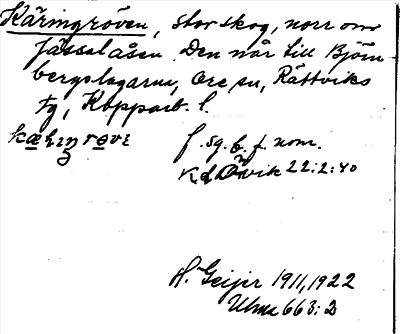 Käringröven, stor skog, norr om
fässalåsen. Den når till Björn-
bergslagarna, Ore sn, Rättviks
tg, Kopparb. l.
f. sg. b. f. nom.
Kd Övik 22:2:40
H. Geijer 1911, 1922
Ulma 663:2